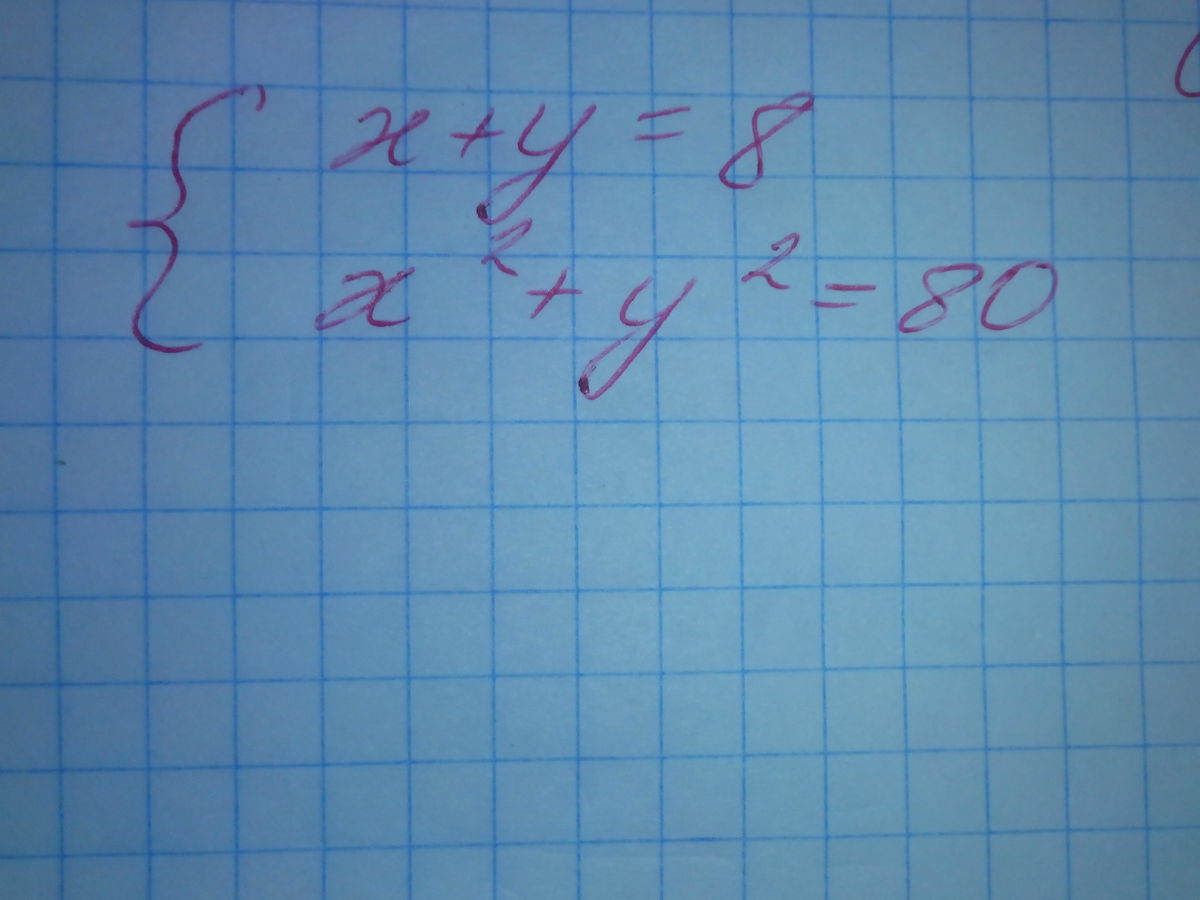 x + y = 8
x² + y² = 80